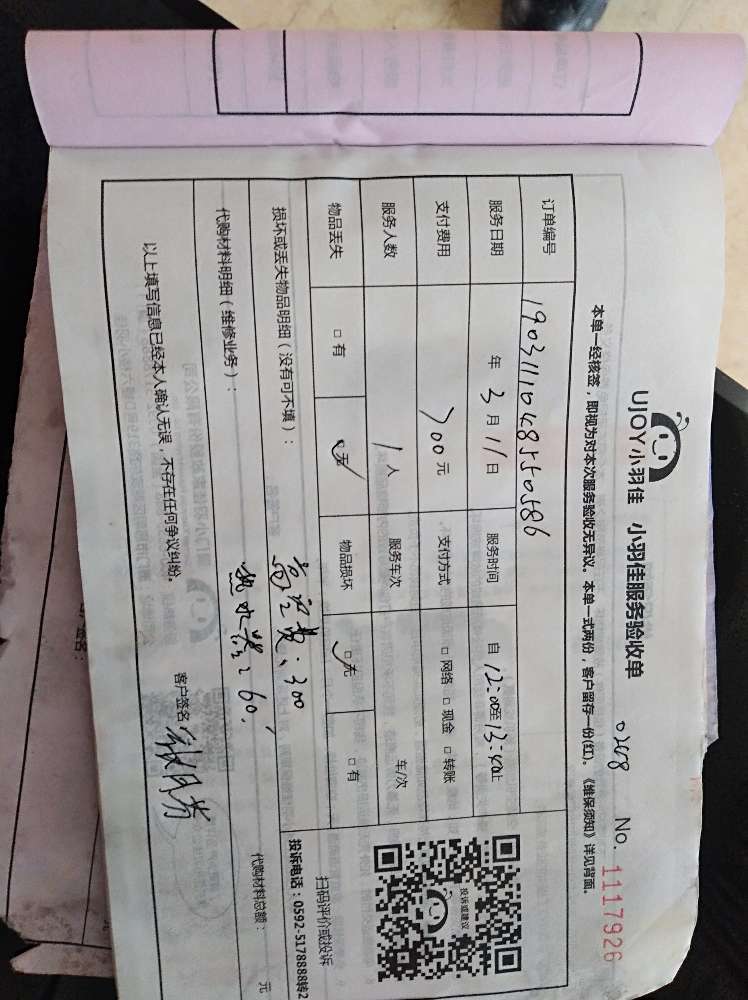 UJOY小羽佳 小羽佳服务验收单 0268 No. 1117926
本单一经核签，即视为对本次服务验收无异议。本单一式两份，客户留存一份(红)。《维保须知》详见背面。
订单编号 1903111048550586
服务日期 年 3 月 11 日 服务时间 自 12:00至 13:40止
支付费用 700 元 支付方式 □ 网络 □ 现金 □ 转账
服务人数 1 人 服务车次 车/次
物品丢失 □ 有 □ 无 物品损坏 □ 无 □ 有
投诉或建议
扫码评价或投诉
投诉电话：0592-5178888转2
损坏或丢失物品明细（没有可不填）：
高空费：300
代购材料明细（维修业务）：
热水器：60
代购材料总额： 元
以上填写信息已经本人确认无误，不存在任何争议纠纷。
客户签名